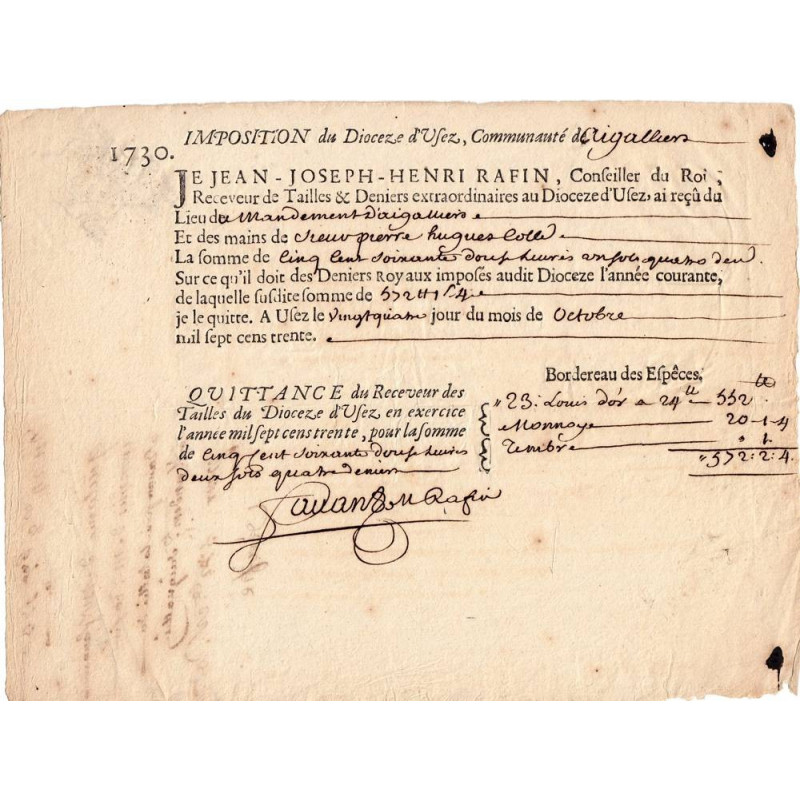 IMPOSITION du Dioceze d'Usez, Communauté d'Aigalliers
1730.
JE JEAN-JOSEPH-HENRI RAFIN, Conseiller du Roi,
Receveur de Tailles & Deniers extraordinaires au Dioceze d'Usez, ai reçû du
Lieu du Mandement d'aigalliers
Et des mains de sieur pierre hugues Colle
La somme de Cinq Cent soixante douse livres un sols quatre den
Sur ce qu'il doit des Deniers Royaux imposés audit Dioceze l'année courante,
de laquelle susdite somme de 572 tt 1 s 4
je le quitte. A Usez le vingt quatre jour du mois de Octobre
mil sept cens trente.
Bordereau des Espêces.
tt
23: Louis d'or a 24 tt 552
Monnoye 20-1-4
Timbre " 1
"572:2:4
QUITTANCE du Receveur des
Tailles du Dioceze d'Usez en exercice
l'année mil sept cens trente, pour la somme
de Cinq Cent soixante douse livres
deux sols quatre deniers
Rafin